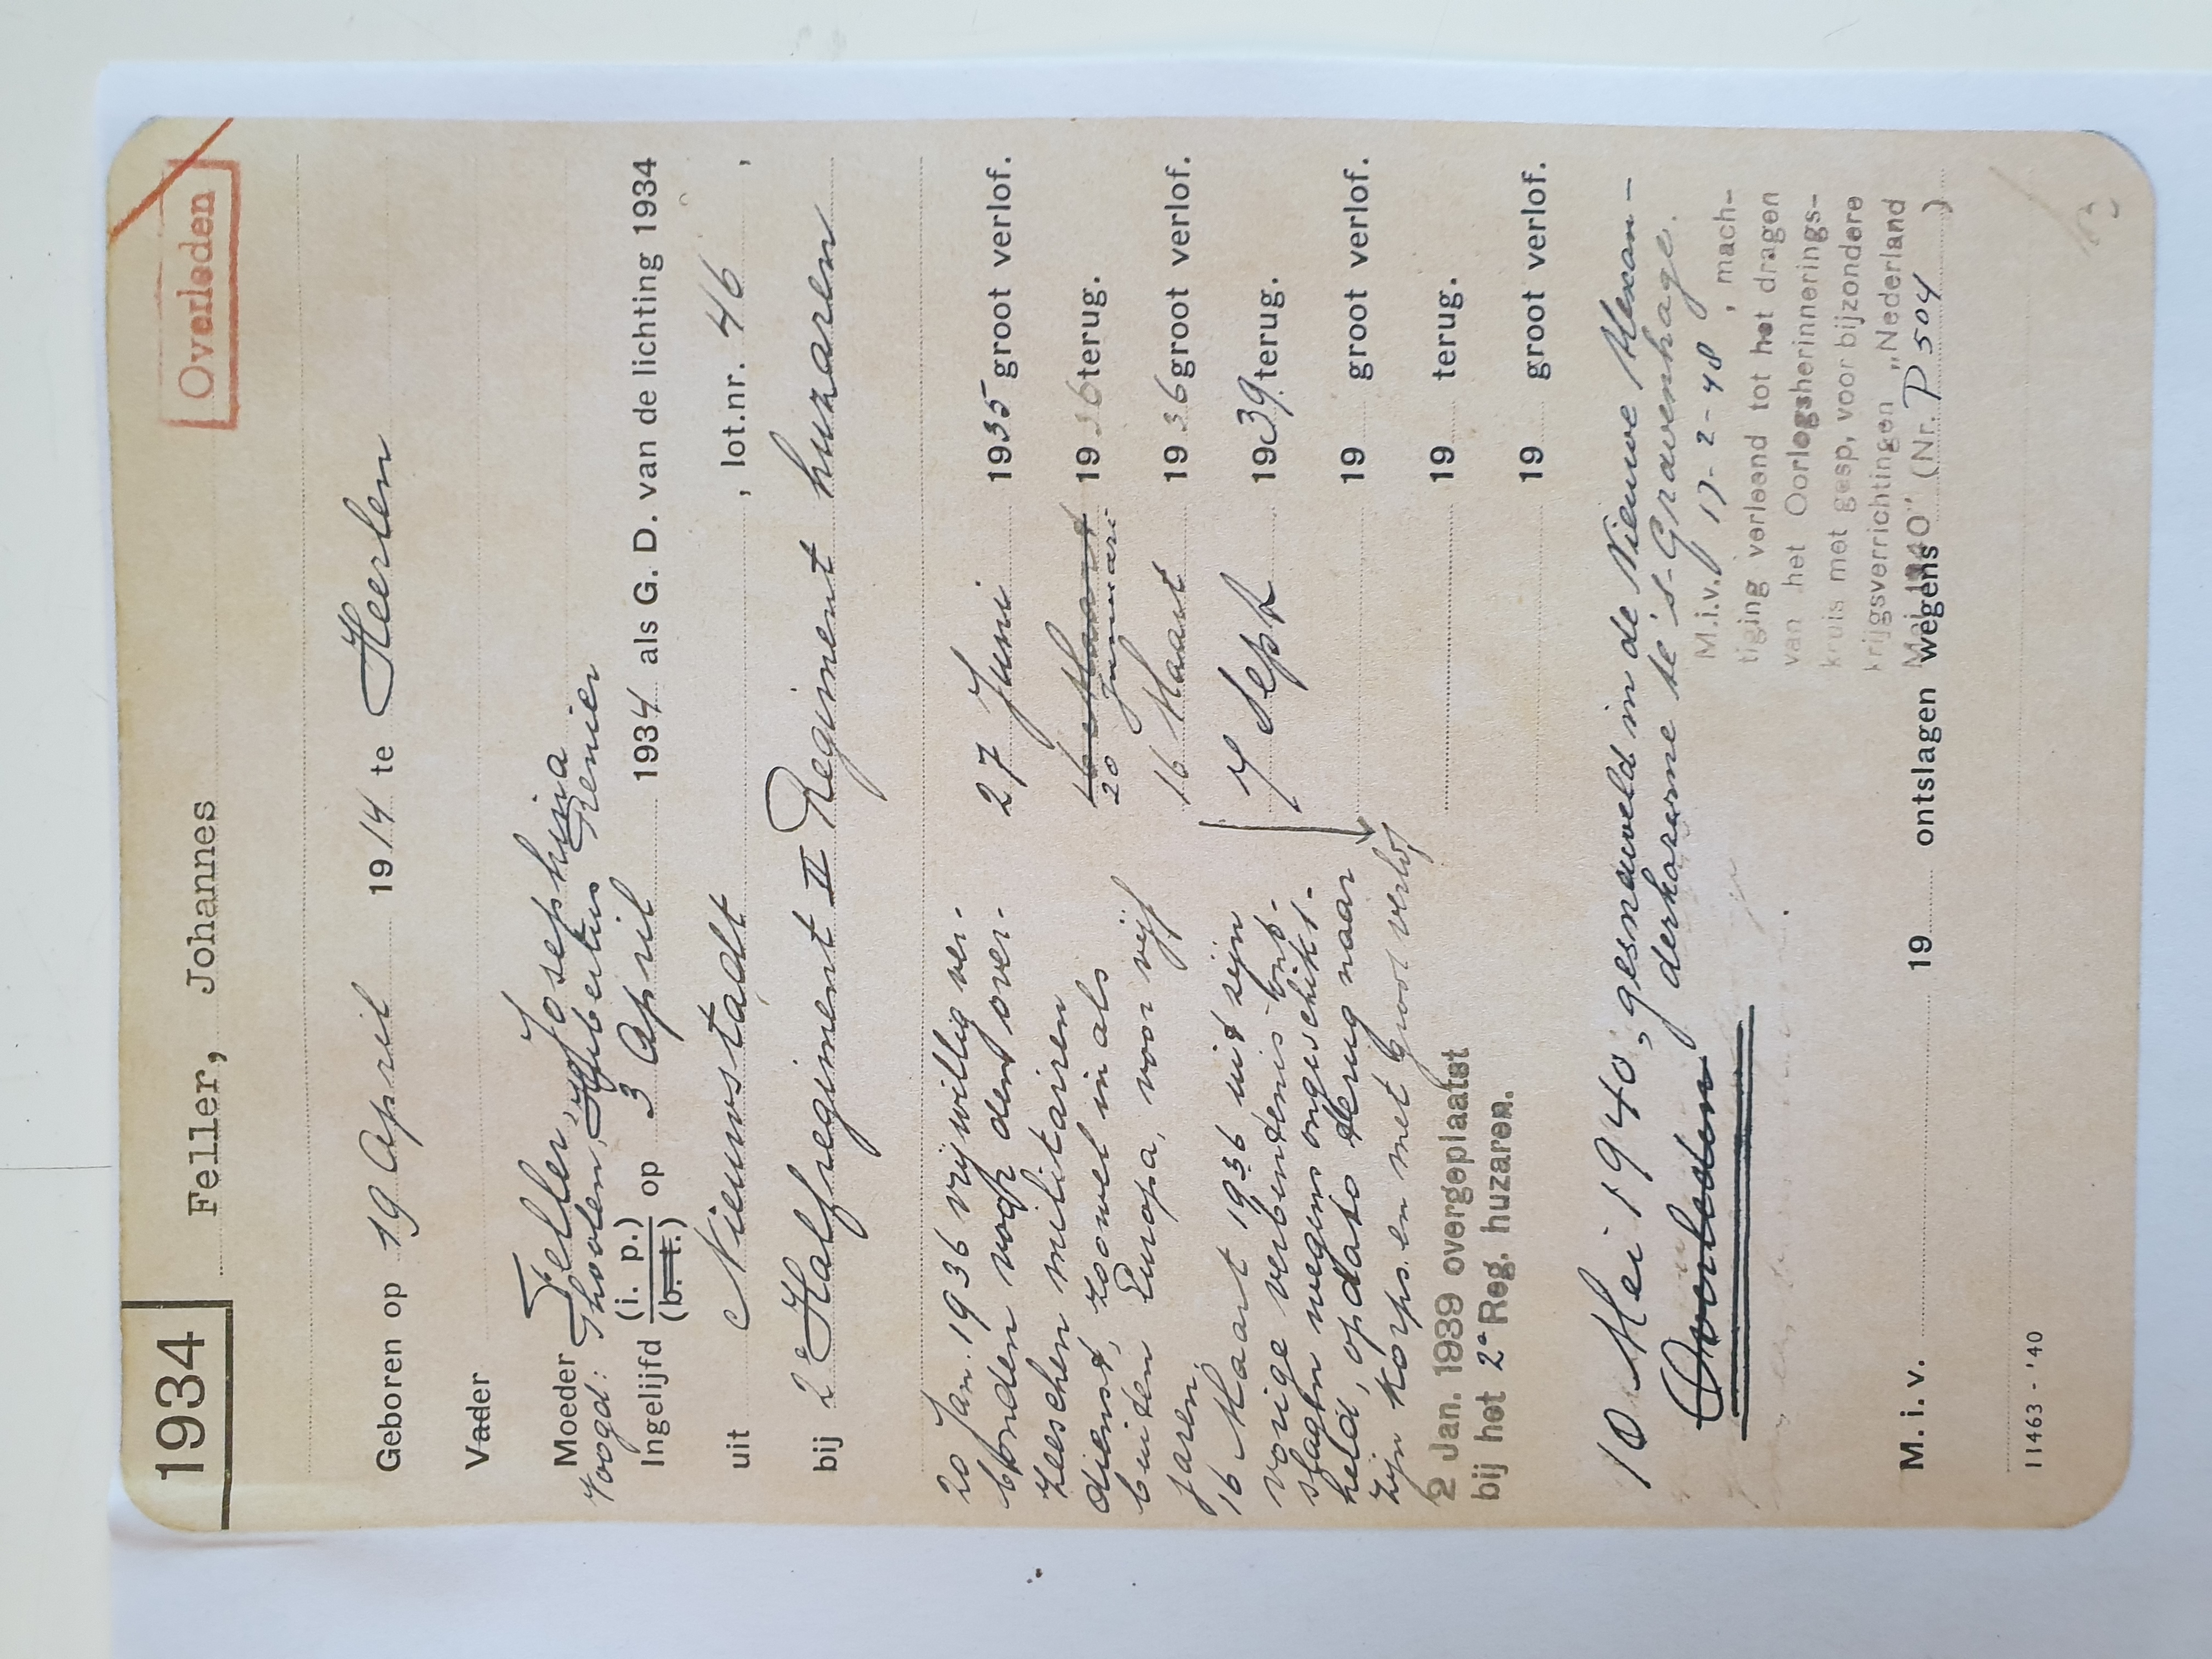 1934
Overleden
Feller, Johannes
Geboren op 19 April 1914 te Heerlen
Vader
Moeder Feller, Josephina
Voogd: Thoolen, Hubertus Renier
Ingelijfd (i. p.) (b. t.) op 3 April 1934 als G. D. van de lichting 1934
uit Nieuwstadt, lot.nr. 46,
bij 2e Halfregiment II Regiment huzaren
27 Juni 1935 groot verlof.
16 Maart 1936 terug.
20 Januari
16 Maart 1936 groot verlof.
7 Sept 1939 terug.
19 groot verlof.
19 terug.
19 groot verlof.
20 Jan. 1936 vrijwillig ver-
bonden voor den over-
zeeschen militairen
dienst, zoowel in als
buiten Europa, voor vijf
jaren.
16 Maart 1936 uit zijn
vorige verbintenis ont-
slagen wegens ongeschikt-
heid, op dato terug naar
zijn korps en met Groot verlof
2 Jan. 1939 overgeplaatst
bij het 2e Reg. huzaren.
10 Mei 1940, gesneuveld in de Nieuwe Alexan-
derkazerne te 's-Gravenhage.
Overleden
M.i.v. 17-2-48, mach-
tiging verleend tot het dragen
van het Oorlogsherinnerings-
kruis met gesp, voor bijzondere
krijgsverrichtingen "Nederland
Mei 1940" (Nr. P 504)
M. i. v. 19 ontslagen wegens
11463 - '40